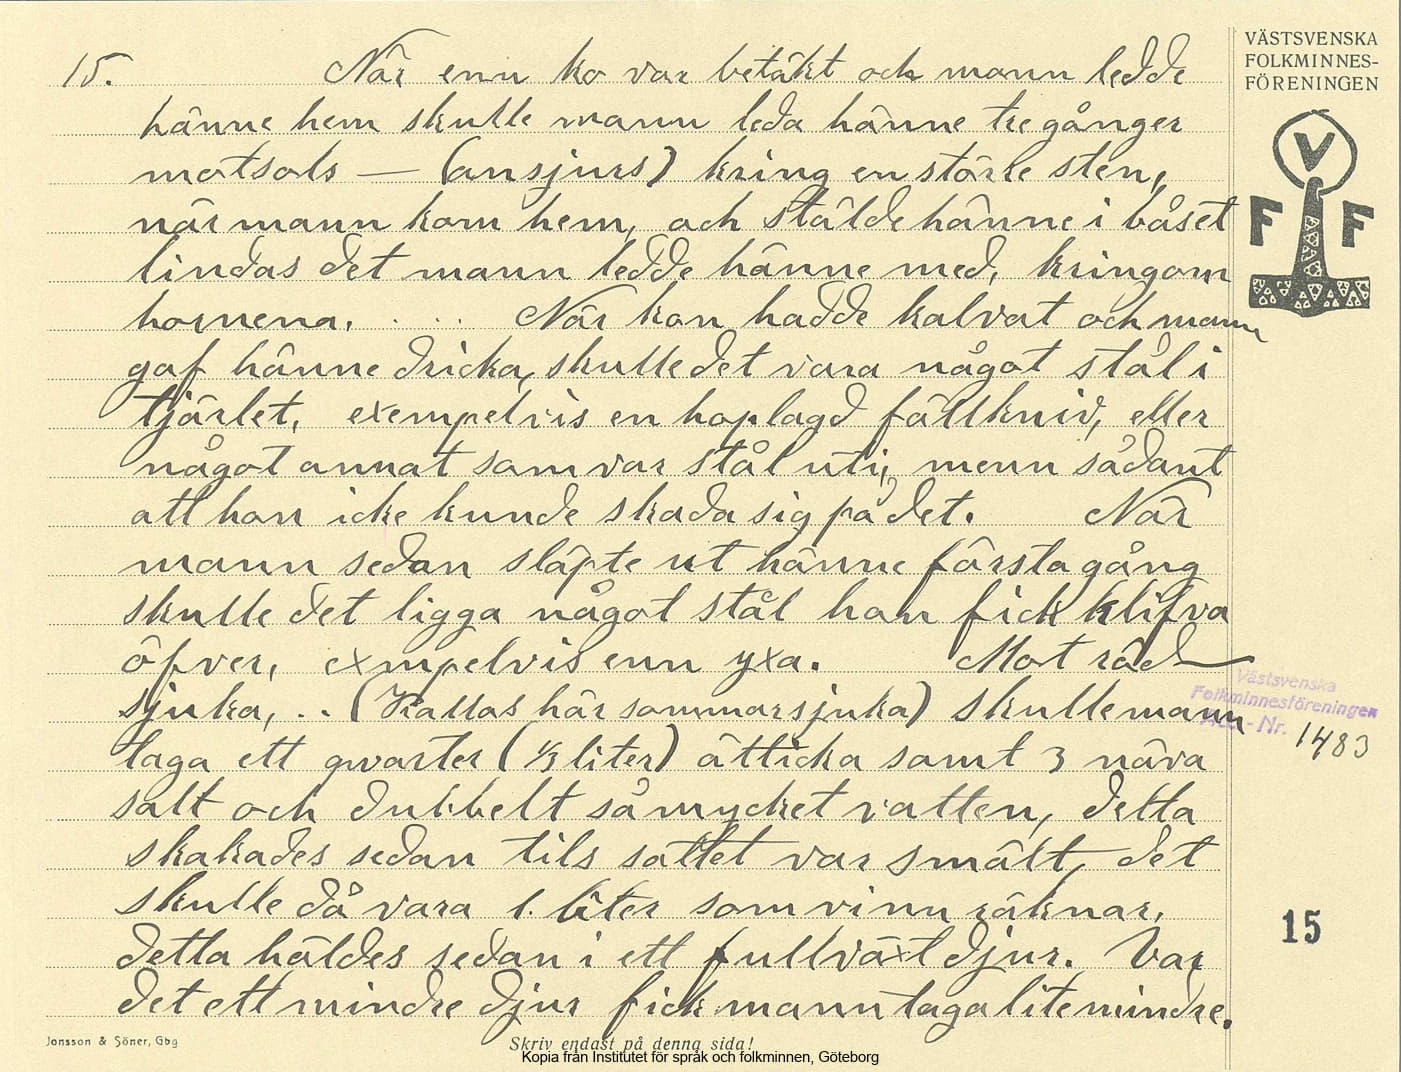 VÄSTSVENSKA
FOLKMINNES-
FÖRENINGEN
V
F F
15. När enn ko var betäkt och mann ledde
hänne hem skulle mann leda hänne tre gånger
motsols — (ansjurs) kring en störle sten,
när mann kom hem, och stälde hänne i båset
lindas det mann ledde hänne med, kringom
hornena. . . . . När kon hadde kalvat och mann
gaf hänne dricka, skulle det vara något stål i
tjärlet, exempelvis en hoplagd fällkniv, eller
något annat som var stål uti, menn sådant
att hon icke kunde skada sig på det. När
mann sedan släpte ut hänne första gång
skulle det ligga något stål hon fick klifva
öfver, exmpelvis enn yxa. Mot röd
sjuka, .. (Kallas här sommarsjuka) skulle mann
taga ett qwarter (1/3 liter) ätticka samt 3 näva
salt och dubbelt så mycket vatten, detta
skakades sedan tils saltet var smält, det
skulle då vara 1. liter som vi nu räknar,
detta häldes sedan i ett fullväxt djur. Var
det ett mindre djur fick mann taga lite mindre.
Västsvenska
Folkminnesföreningen
Acc.-Nr. 1483
15
Jonsson & Söner, Gbg
Skriv endast på denna sida!
Kopia från Institutet för språk och folkminnen, Göteborg